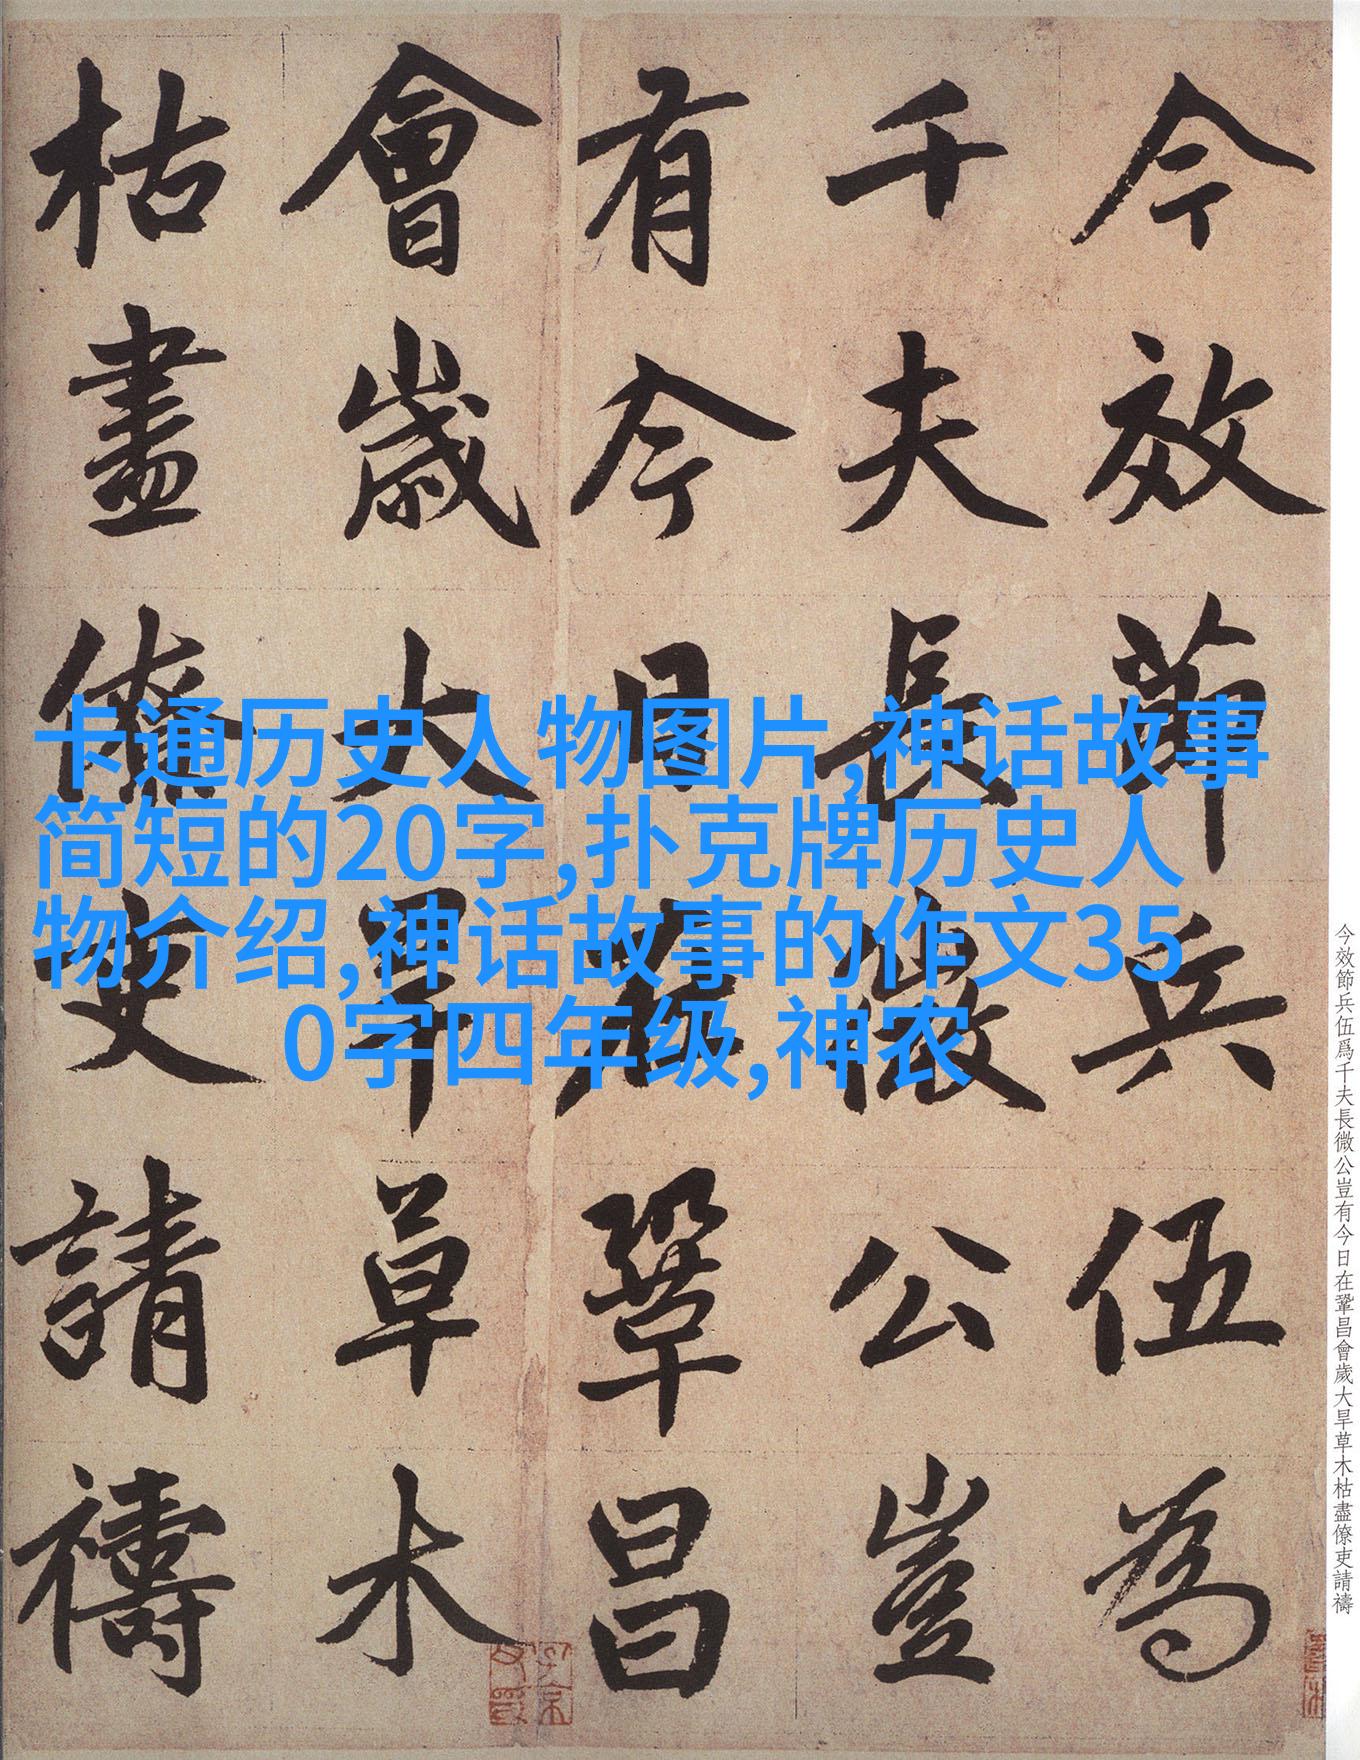 今效節兵伍為
千夫長微公豈
有今日在鞏昌
會歲大旱草木
枯盡僚吏請禱
卡通历史人物图片,神话故事
简短的20字,扑克牌历史人
物介绍,神话故事的作文35
0字四年级,神农
今效節兵伍爲千夫長微公豈有今日在鞏昌會歲大旱草木枯盡僚吏請禱